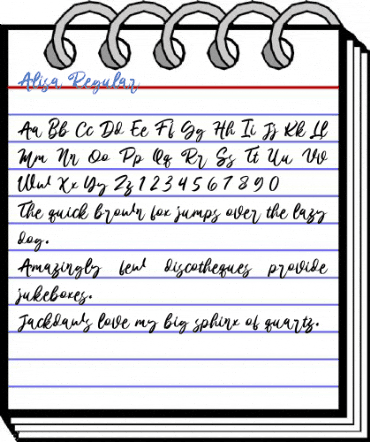 Alisa, Regular
Aa Bb Cc Dd Ee Ff Gg Hh Ii Jj Kk Ll
Mm Nn Oo Pp Qq Rr Ss Tt Uu Vv
Ww Xx Yy Zz 1 2 3 4 5 6 7 8 9 0
The quick brown fox jumps over the lazy
dog.
Amazingly few discotheques provide
jukeboxes.
Jackdaws love my big sphinx of quartz.